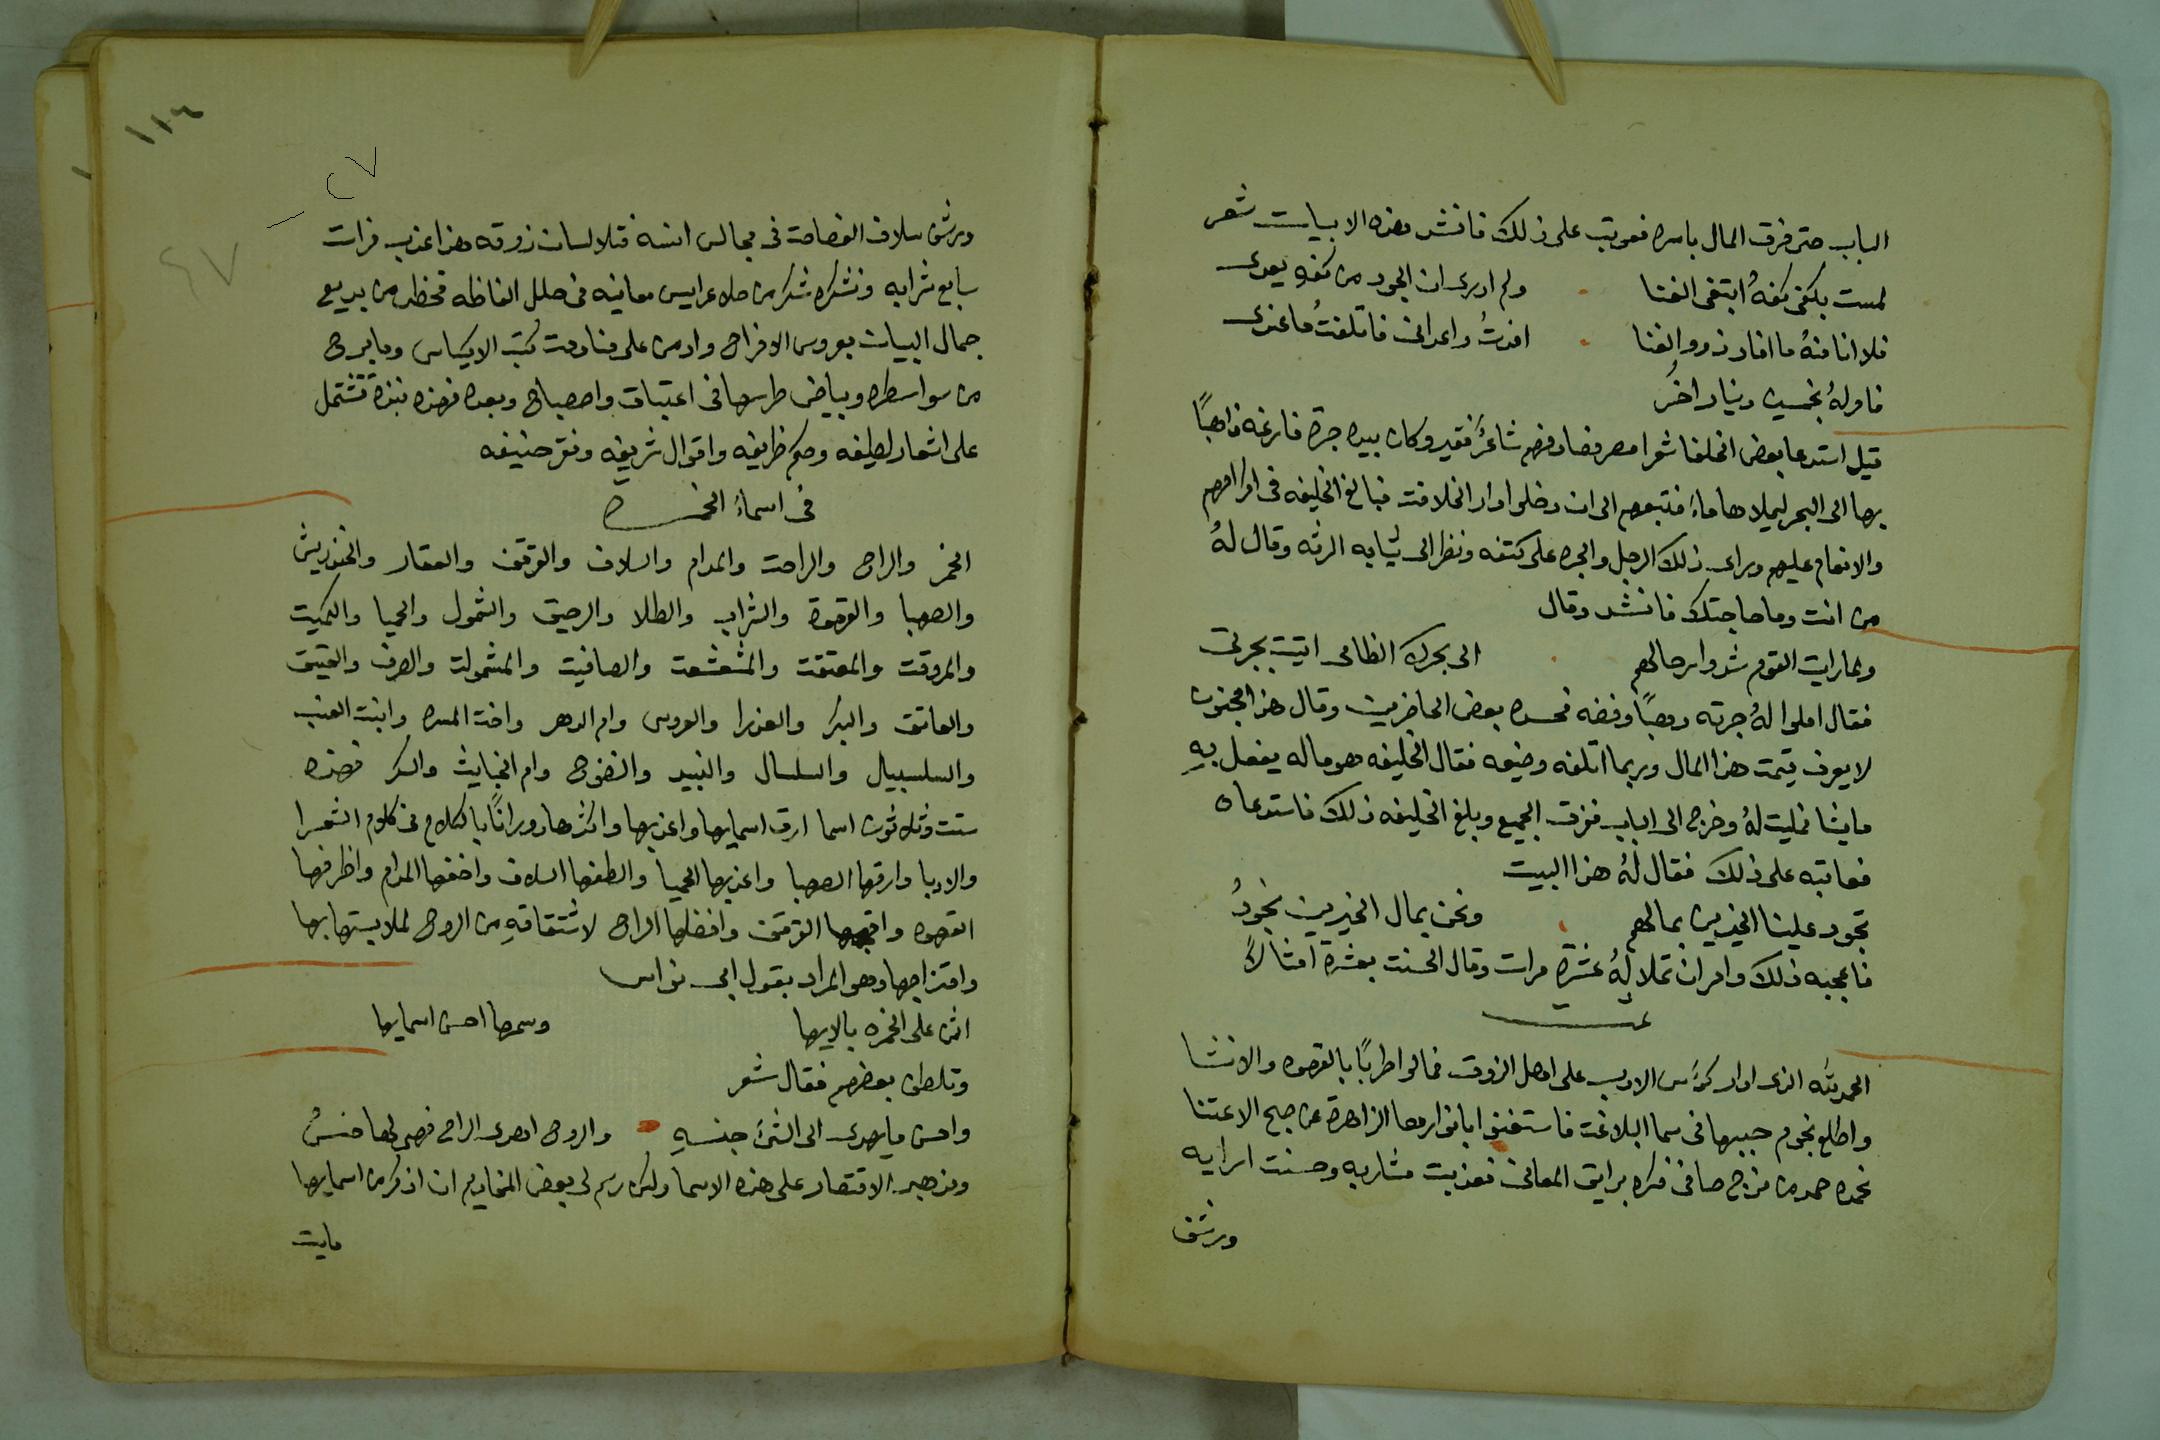 الباب حتى فرق المال باسره فعوتب على ذلك فانشد هذه الابيات شعر
لمست بكفي كفهُ ابتغى الغنا ولم ادرى ان الجود من كفه يعدى
فلا انا منهُ ما افاد ذووا الغنا افدتُ واعدانى فاتلفتُ ما عندى
فامر لهُ بخمسين دينار اخرُ
قيل استدعا بعض الخلفا شعرا مصر فصادفهم شاعرٌ فقير وكان بيده جرة فارغه ذاهبًا
بها الى البحر ليملاها ماءً فتبعهم الى ان دخلوا دار الخلافت فبالغ الخليفه فى اكرامهم
والانعام عليهم وراى ذلك الرجل والجره على كتفه ونظر الى ثيابه الرثه وقال لهُ
من انت وما حاجتك فانشد وقال
ولما رايت القوم شدوا رحالهم الى بحرك الطامى اتيت بجرتى
فقال املوا لهُ جرته دهبًا وفضه فحسده بعض الحاضرين وقال هذا مجنون
لا يعرف قيمت هذا المال وربما اتلفه وضيعه فقال الخليفه هو ماله يفعل بهِ
ما يشا فمليت لهُ وخرج الى الباب ففرق الجميع وبلغ الخليفه ذلك فاستدعاه
فعاتبه على ذلك فقال لهُ هذا البيت
تجود علينا الخيرين بمالهم ونحن بمال الخيرين نجودُ
فاعجبه ذلك وامر ان تملا لهُ عشرة مرات وقال الحسنت بعشرة امثالٌ
تمت
الحمدلله الذى ادار كؤس الادب على اهل الذوق فمالوا طربًا بالقهوه والانتشا
واطلع نجوم حببها فى سما البلاغت فاستغنوا بانوارها الزاهرة عن صبح الاعتنا
نحمده حمد من مزج صافى فكره برايق المعانى فعذبت مشاربه وحسنت ارايه
ورشف
١١٦
٢٧
٤٧
ورشف سلاف الفصاحت فى مجالس انسه فتلا لسان ذوقه هذا عذب فرات
سايغ شرابه ونشكره شكر من جلا عرايس معانيه فى حلل الفاظه فحظى من بديع
جمال البيات بعروس الافراح وادمن على منادمت كتب الاكياس وما برح
من سواد سطره وبياض طرسها فى اغتباق واصطباح وبعده فهذه نبذة تشتمل
على اشعار لطيفه وحكم ظريفه واقوال شريفه وفقر حنيفه
فى اسماءُ الخمره
الخمر والراح والراحت والمدام والسلاف والقرقف والعقار والخندريش
والصهبا والقهوة والشراب والطلا والرحيق والشمول والحميا والكميت
والمروقت والمعتقت والمشعشعت والصافيت والمشمولت والصرف والعتيق
والعاتق والبكر والعذرا والعروس وام الدهر واخت المسره وابنت العنب
والسلسبيل والسلسال والنبيد والنضوح وام الخبايث والسكر فهذه
ستت وثلاثون اسما ارق اسمايها واعذبها واكثرها دورانًا بالكلام فى كلام الشعرا
والادبا وارقها الصهبا واعذبها الحميا والطفها السلاف واخفها المدام واظرفها
القهوه القرقف وافضلها الراح لاشتقاقهِ من الروح لملابستها بها
وامتزاجها وهو المراد بقول ابى نواس
اثن على الخمره بالايها وسمها احسن اسمايها
وتلطف بعضهم فقال شعر
واحسن ما يهدى الى الشئ جنسهِ والروح اهدى الراح فهى لها جنسُ
ومذهبى الاقتصار على هذه الاسما ولكن رسم لى بعض المخاديم ان اذكر من اسمايها
مايت